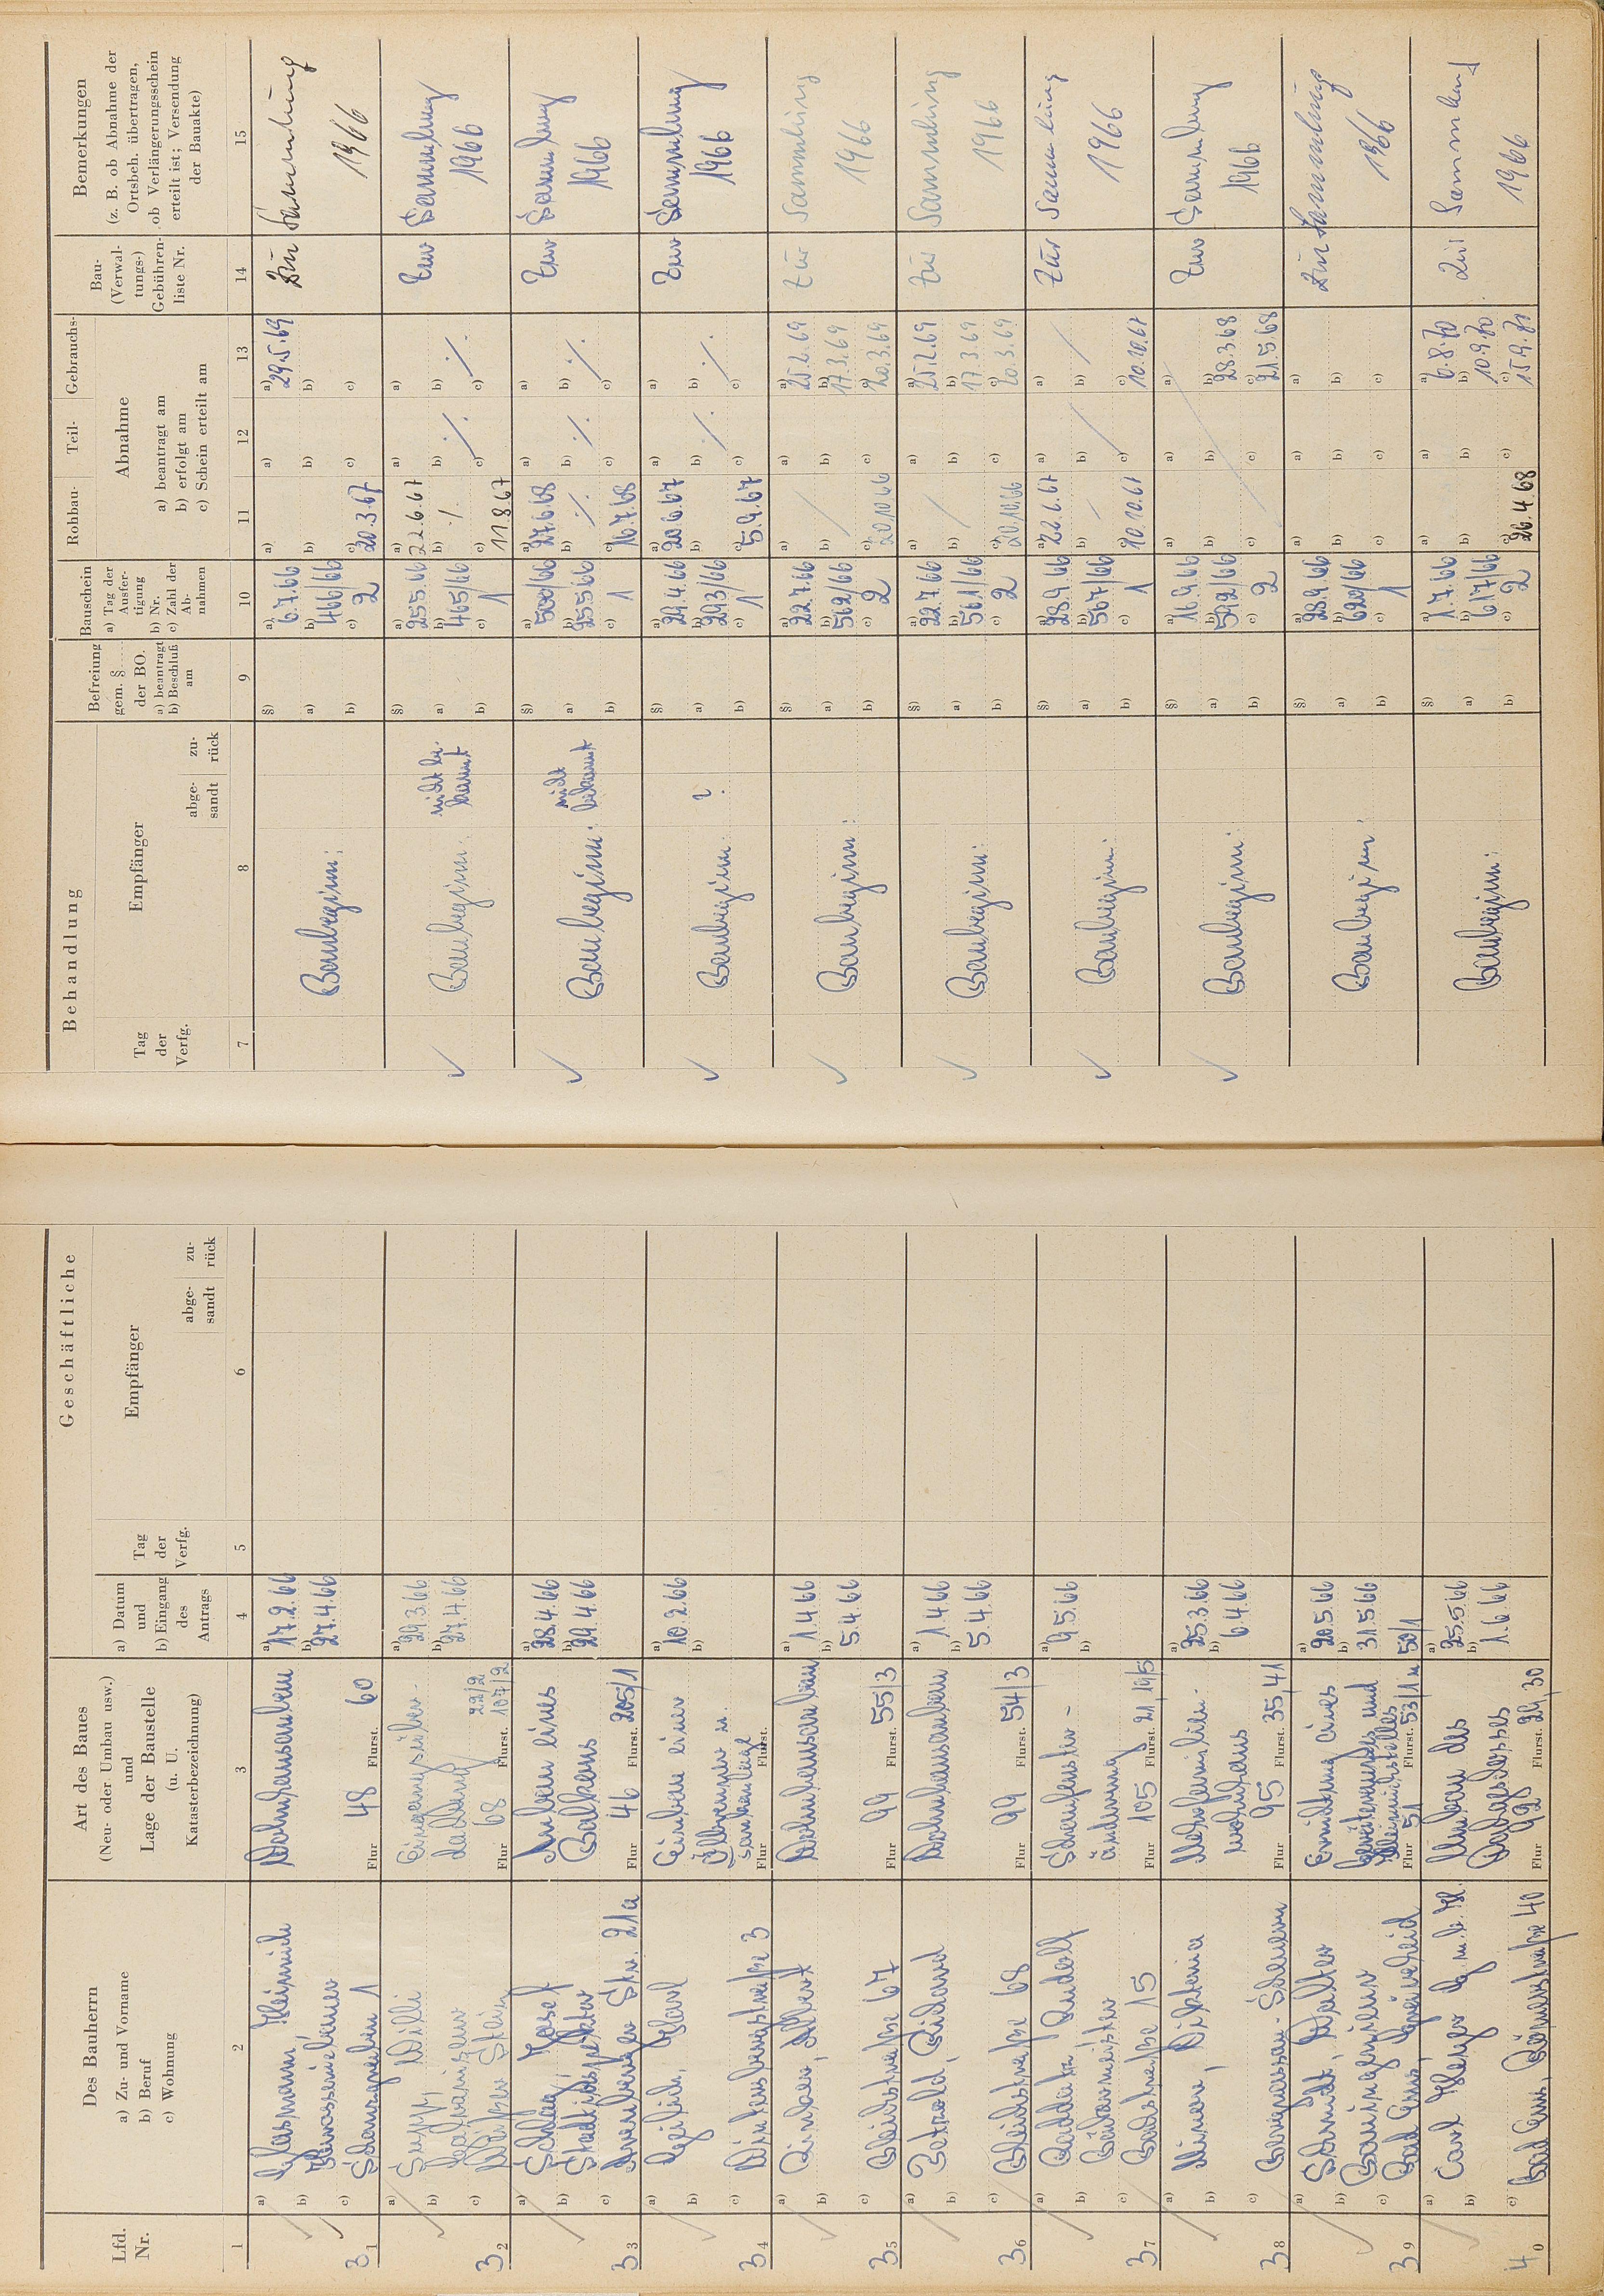 Geschäftliche
Lfd.
Nr.
Des Bauherrn
a) Zu- und Vorname
b) Beruf
c) Wohnung
Art des Baues
(Neu- oder Umbau usw.)
und
Lage der Baustelle
(u. U.
Katasterbezeichnung)
a) Datum
und
b) Eingang
des
Antrags
Tag
der
Verfg.
Empfänger
abge-
sandt
zu-
rück
1 2 3 4 5 6
a) Heinrich
b)
c) 1
31
Wohnhausanbau
Flur 48 Flurst. 60
a) 17.2.66
b) 27.4.66
a) Willi
b)
c)
32
Flur 68 Flurst. 107/2
22/2
a) 29.3.66
b) 27.4.66
a) Josef
b) Stadtinspektor
c) Str. 21a
33
Anbau eines
Balkons
Flur 46 Flurst. 205/1
a) 28.4.66
b) 29.4.66
a) Karl
b)
c) 3
34
Einbau einer
Flur Flurst.
a) 10.2.66
b)
a) Albert
b)
c) Bleichstraße 67
35
Wohnhausanbau
Flur 99 Flurst. 55/3
a) 1.4.66
b) 5.4.66
a) Richard
b)
c) Bleichstraße 68
36
Wohnhausanbau
Flur 99 Flurst. 54/3
a) 1.4.66
b) 5.4.66
a) Raddatz Rudolf
b) Bäckermeister
c) 15
37
Schaufenster-
änderung
Flur 105 Flurst. 21, 19/5
a) 9.5.66
b)
a) Viktoria
b)
c)
38
Mehrfamilien-
wohnhaus
Flur 95 Flurst. 35, 41
a) 25.3.66
b) 6.4.66
a) Schmidt, Walter
b) Bauingenieur
c) Bad Ems,
39
Errichtung eines
und
Flur 51 Flurst. 53/1
50/1
a) 20.5.66
b) 31.5.66
a) Carl
b)
c) Bad Ems, Römerstraße 40
40
Umbau des
Flur 92 Flurst. 29, 30
a) 25.5.66
b) 1.6.66
Behandlung
Tag
der
Verfg.
Empfänger
abge-
sandt
zu-
rück
Befreiung
gem. §
der BO.
a) beantragt
b) Beschluß
am
Bauschein
a) Tag der
Ausfer-
tigung
b) Nr.
c) Zahl der
Ab-
nahmen
Rohbau- Teil- Gebrauchs-
Abnahme
a) beantragt am
b) erfolgt am
c) Schein erteilt am
Bau-
(Verwal-
tungs-)
Gebühren-
liste Nr.
Bemerkungen
(z. B. ob Abnahme der
Ortsbeh. übertragen,
ob Verlängerungsschein
erteilt ist; Versendung
der Bauakte)
7 8 9 10 11 12 13 14 15
Baubeginn:
§) a) 6.7.66 a) a) a) 29.5.69 Zur Sammlung
a) b) 466/66 b) b) b)
b) c) 2 c) 20.3.67 c) c) 1966
Baubeginn: nicht be-
kannt
§) a) 25.5.66 a) 22.6.67 a) a)
a) b) 465/66 b) ./. b) ./. b) ./. Zur Sammlung
b) c) 1 c) 11.8.67 c) c) 1966
Baubeginn: nicht
bekannt
§) a) 500/66 a) 27.6.68 a) a)
a) b) 25.5.66 b) ./. b) ./. b) ./. Zur Sammlung
b) c) 1 c) 16.7.68 c) c) 1966
Baubeginn: ?
§) a) 29.4.66 a) 20.6.67 a) a)
a) b) 293/66 b) b) ./. b) ./. Zur Sammlung
b) c) 1 c) 5.9.67 c) c) 1966
Baubeginn:
§) a) 22.7.66 a) a) a) 25.2.69 Zur Sammlung
a) b) 562/66 b) / b) b) 17.3.69
b) c) 2 c) 20.10.66 c) c) 20.3.69 1966
Baubeginn:
§) a) 22.7.66 a) a) a) 25.2.69 Zur Sammlung
a) b) 561/66 b) / b) b) 17.3.69
b) c) 2 c) 20.10.66 c) c) 20.3.69 1966
Baubeginn:
§) a) 28.9.66 a) 22.6.67 a) a) Zur Sammlung
a) b) 567/66 b) - b) / b) /
b) c) 1 c) 10.10.67 c) c) 10.10.67 1966
Baubeginn:
§) a) 16.9.66 a) a) a)
a) b) 592/66 b) b) b) 28.3.68 Zur Sammlung
b) c) 2 c) c) c) 21.5.68 1966
Baubeginn:
§) a) 28.9.66 a) a) a) Zur Sammlung
a) b) 620/66 b) b) b)
b) c) 1 c) c) c) 1966
Baubeginn:
§) a) 1.7.66 a) a) a) 6.8.70 Zur Sammlung
a) b) 617/66 b) b) b) 10.9.70
b) c) 2 c) 26.4.68 c) c) 15.9.70 1966